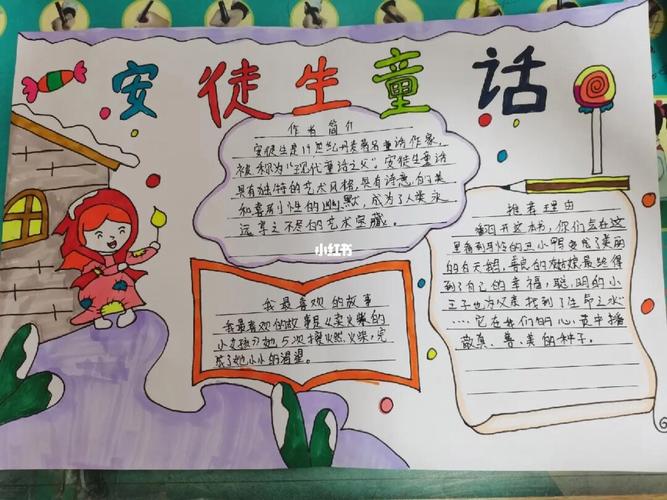 安徒生童话
作者简介
安徒生是19世纪丹麦著名童话作家,
被称为"现代童话之父"。安徒生童话
具有独特的艺术风格,具有诗意的美
和喜剧性的幽默,成为了人类永
远享之不尽的艺术宝藏。
小红书
推荐理由
翻开这本书,你们会在这
里看到的丑小鸭变成了美丽
的白天鹅,善良的姑娘最终得
到了自己的幸福,聪明的小
王子也为父亲找到了生命之水
……它在我们的心灵中播
散真、善、美的种子。
我最喜欢的故事
我最喜欢的故事是《卖火柴的
小女孩》她5次擦燃火柴,完
成了她小小的渴望。